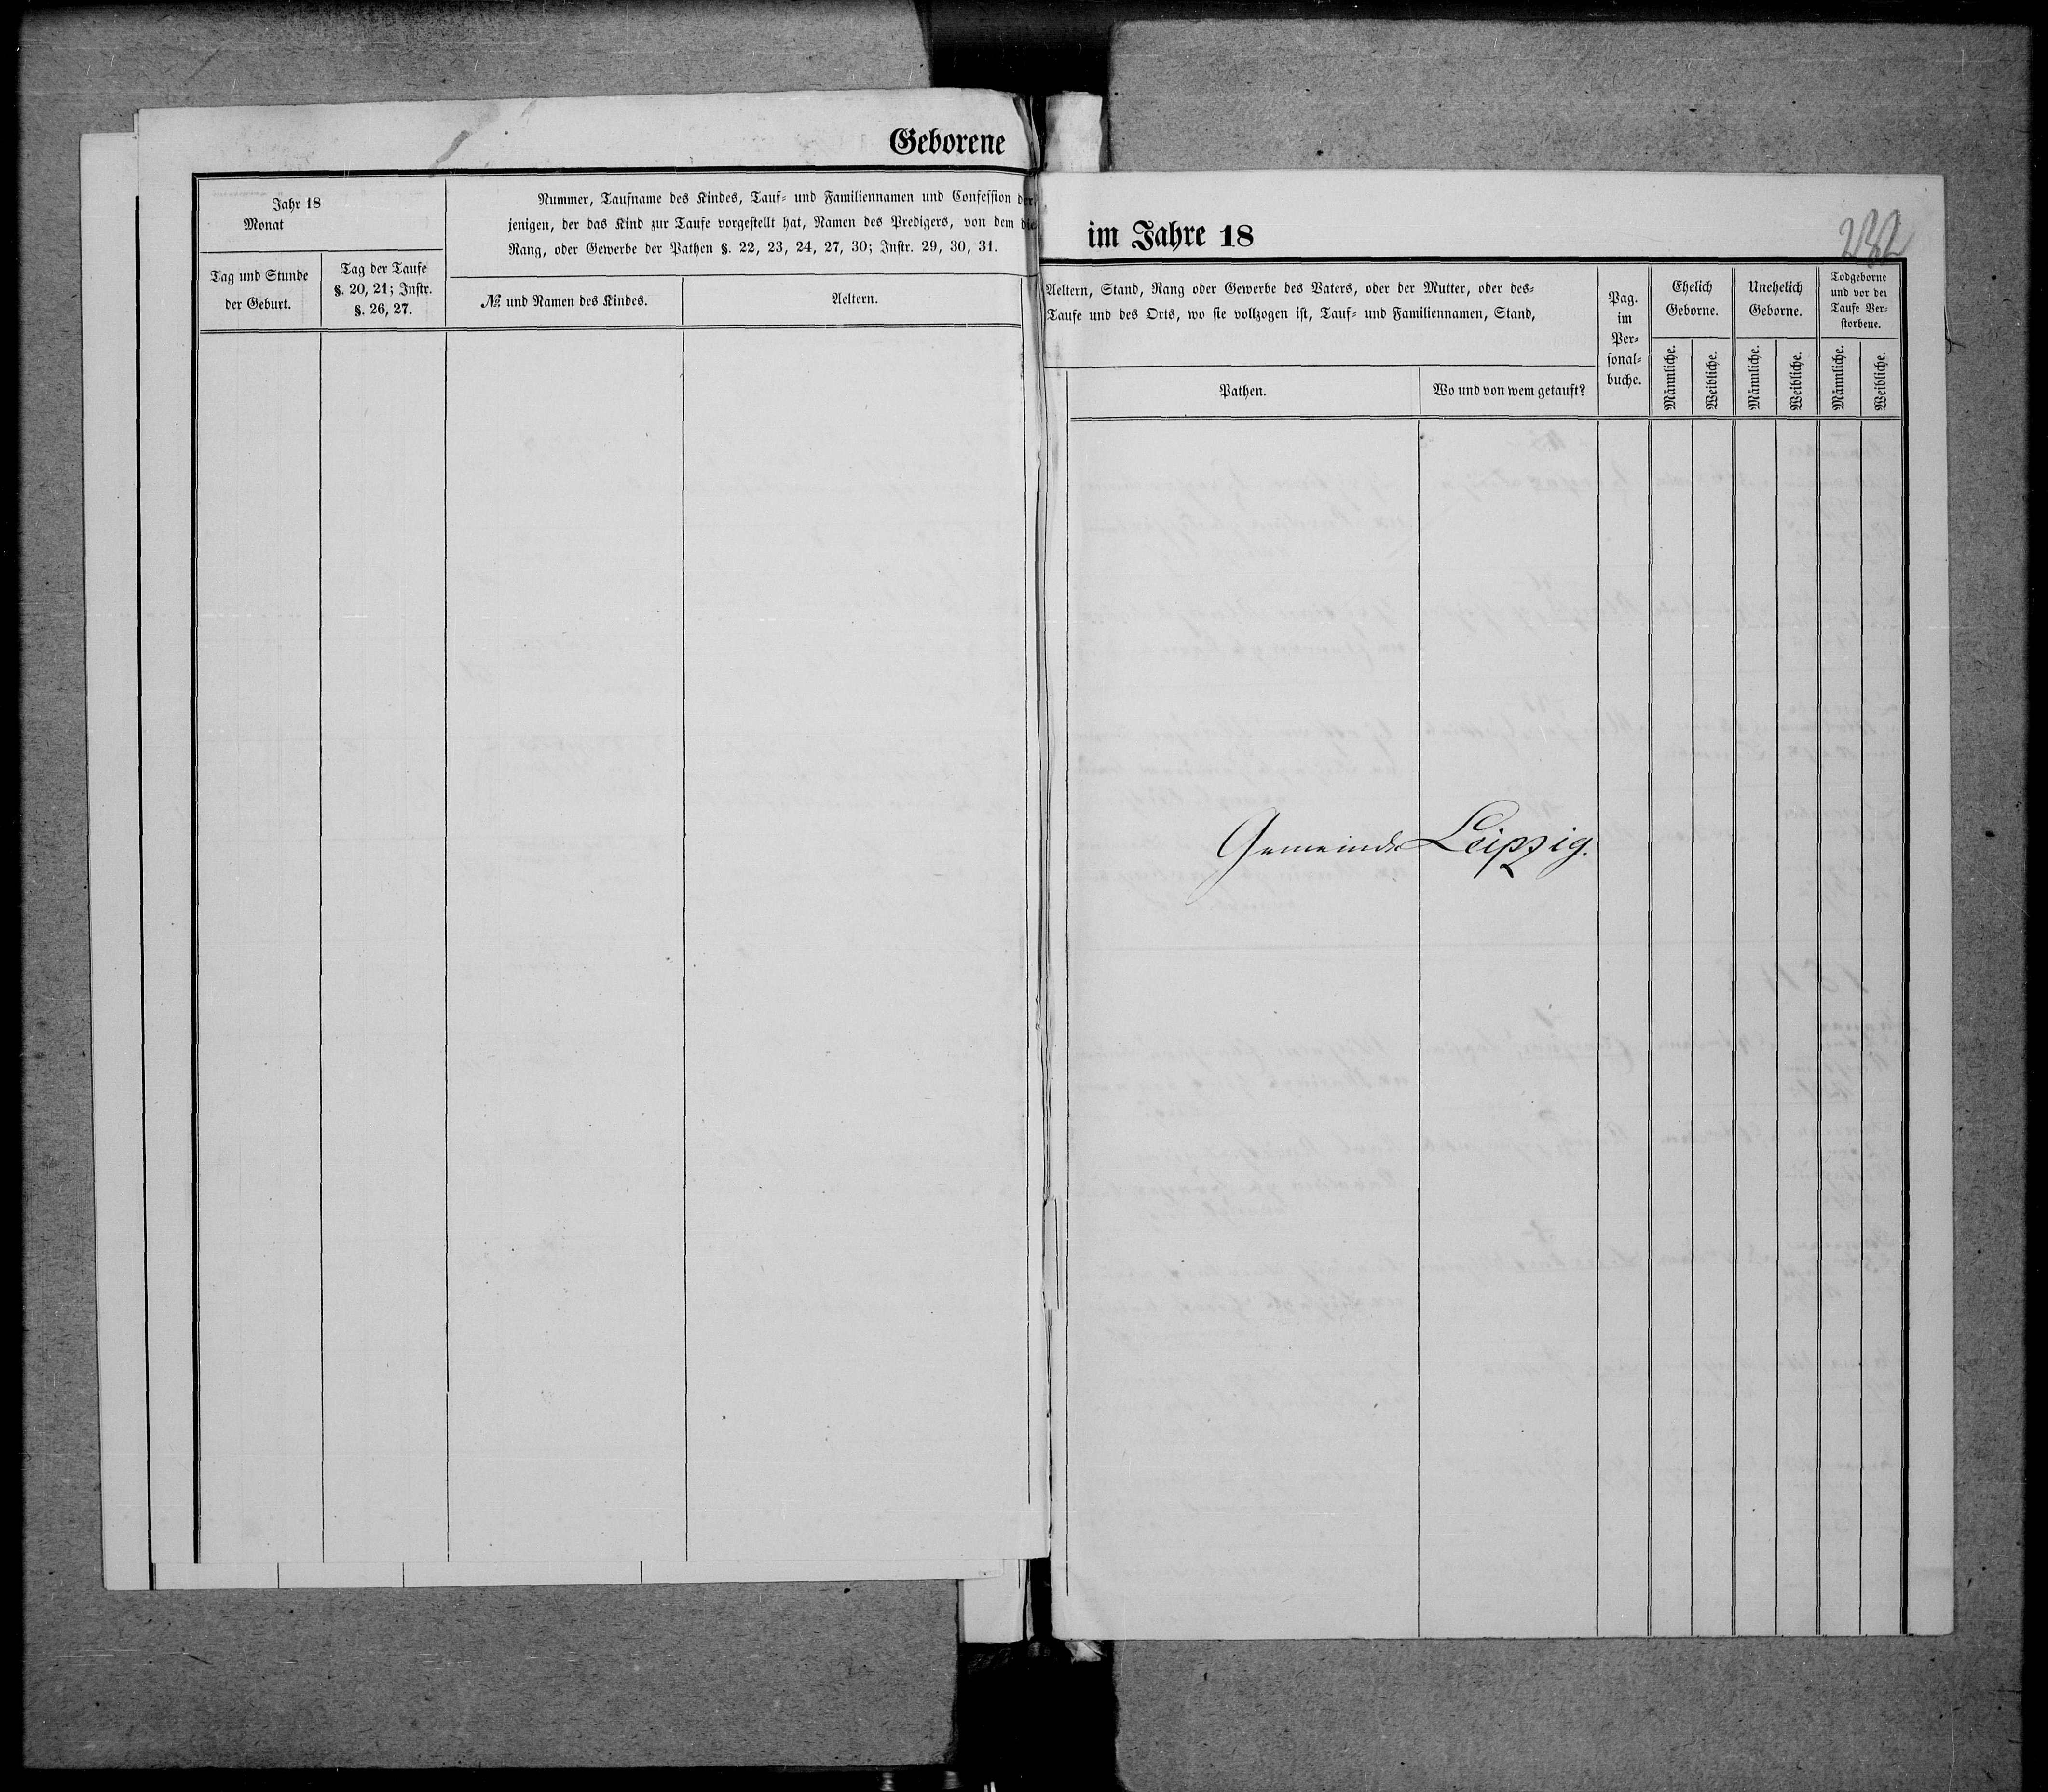 Geborene
Jahr 18
Monat
Nummer, Taufname des Kindes, Tauf- und Familiennamen und Confession der
jenigen, der das Kind zur Taufe vorgestellt hat, Namen des Predigers, von dem die
Rang, oder Gewerbe der Pathen §. 22, 23, 24, 27, 30; Instr. 29, 30, 31.
Tag und Stunde
der Geburt.
Tag der Taufe
§. 20, 21; Instr.
§. 26, 27.
№ und Namen des Kindes.
Aeltern.
im Jahre 18
232
Aeltern, Stand, Rang oder Gewerbe des Vaters, oder der Mutter, oder des-
Taufe und des Orts, wo sie vollzogen ist, Tauf- und Familiennamen, Stand,
Pathen.
Wo und von wem getauft?
Pag.
im
Per-
sonal-
buche.
Ehelich
Geborne.
Männliche.
Weibliche.
Unehelich
Geborne.
Männliche.
Weibliche.
Todgeborne
und vor der
Taufe Ver-
storbene.
Männliche.
Weibliche.
Gemeinde Leipzig.